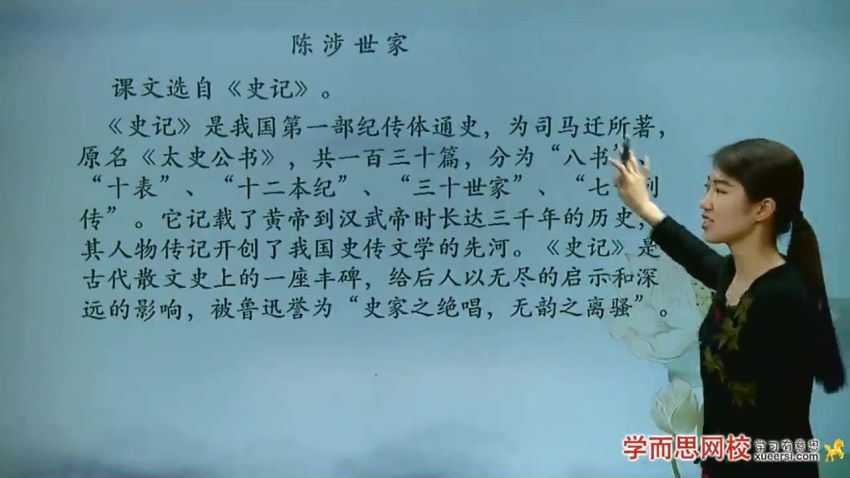 陈涉世家
课文选自《史记》。
《史记》是我国第一部纪传体通史，为司马迁所著，
原名《太史公书》，共一百三十篇，分为“八书”
“十表”、“十二本纪”、“三十世家”、“七 列
传”。它记载了黄帝到汉武帝时长达三千年的历史，
其人物传记开创了我国史传文学的先河。《史记》是
古代散文史上的一座丰碑，给后人以无尽的启示和深
远的影响，被鲁迅誉为“史家之绝唱，无韵之离骚”。
学而思网校 学习有意思
xueersi.com